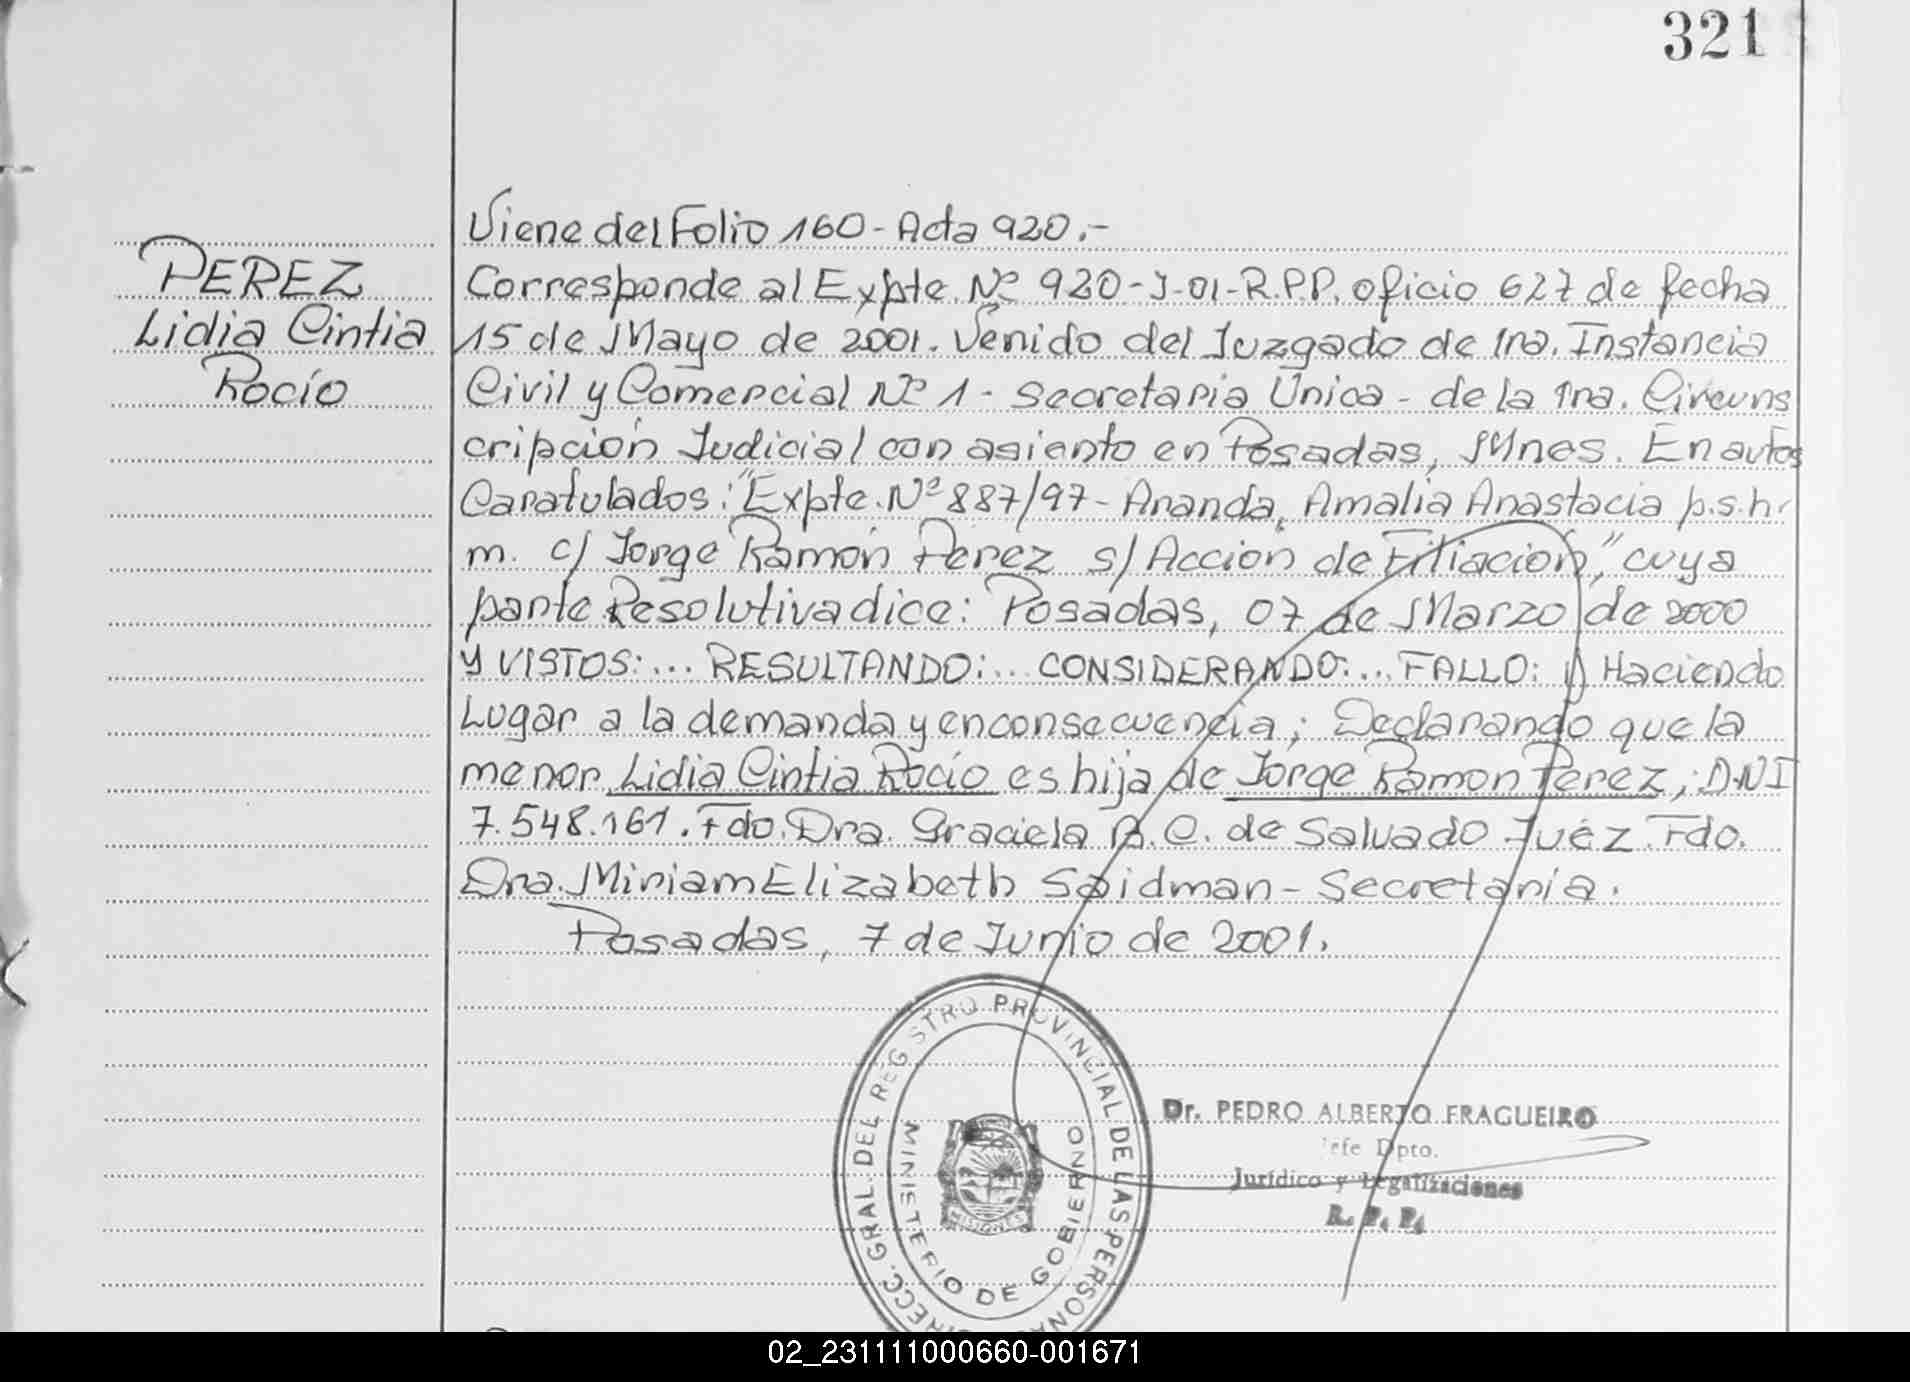 321
PEREZ
Lidia Cintia
Rocío
Viene del Folio 160 - Acta 920.-
Corresponde al Expte. Nº 920-J-01-R.P.P. oficio 627 de fecha
15 de Mayo de 2001. Venido del Juzgado de 1ra. Instancia
Civil y Comercial Nº 1 - Secretaria Única - de la 1ra. Circuns
cripción Judicial con asiento en Posadas, Mnes. En autos
Caratulados: "Expte. Nº 887/97 - Aranda, Amalia Anastacia p.s.h.
m. c/ Jorge Ramón Perez s/ Acción de Filiación", cuya
parte Resolutiva dice: Posadas, 07 de Marzo de 2000
Y VISTOS:... RESULTANDO:... CONSIDERANDO:... FALLO: 1) Haciendo
Lugar a la demanda y en consecuencia; Declarando que la
menor Lidia Cintia Rocío es hija de Jorge Ramon Perez; DNI
7.548.161. Fdo. Dra. Graciela B. C. de Salvado Juéz. Fdo.
Dra. Miriam Elizabeth Saidman - Secretaria.
Posadas, 7 de Junio de 2001.
DIRECC. GRAL. DEL REGISTRO PROVINCIAL DE LAS PERSONAS
MINISTERIO DE GOBIERNO
MISIONES
Dr. PEDRO ALBERTO FRAGUEIRO
Jefe Dpto.
Jurídico y Legalizaciones
R. P. P.
02_231111000660-001671